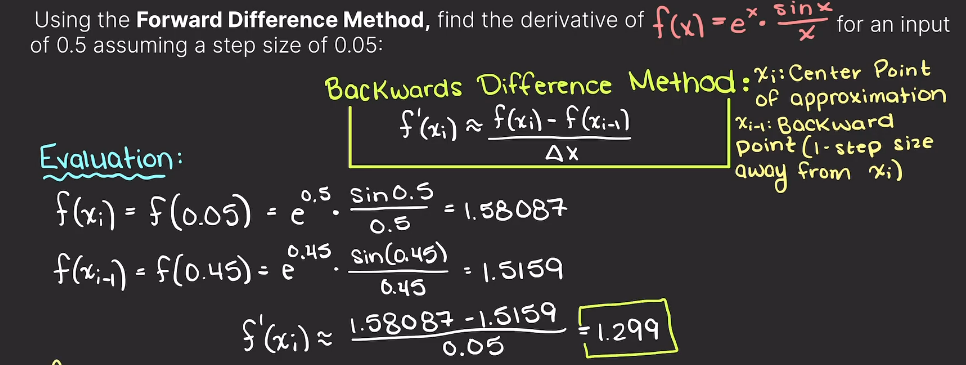 Using the Forward Difference Method, find the derivative of f(x) = e^x · sinx/x for an input
of 0.5 assuming a step size of 0.05:
Backwards Difference Method:
f'(xi) ≈ f(xi) - f(xi-1) / Δx
xi: Center Point
of approximation
xi-1: Backward
point (1-step size
away from xi)
Evaluation:
f(xi) = f(0.05) = e^0.5 · sin0.5/0.5 = 1.58087
f(xi-1) = f(0.45) = e^0.45 · sin(0.45)/0.45 = 1.5159
f'(xi) ≈ 1.58087 - 1.5159 / 0.05 = 1.299